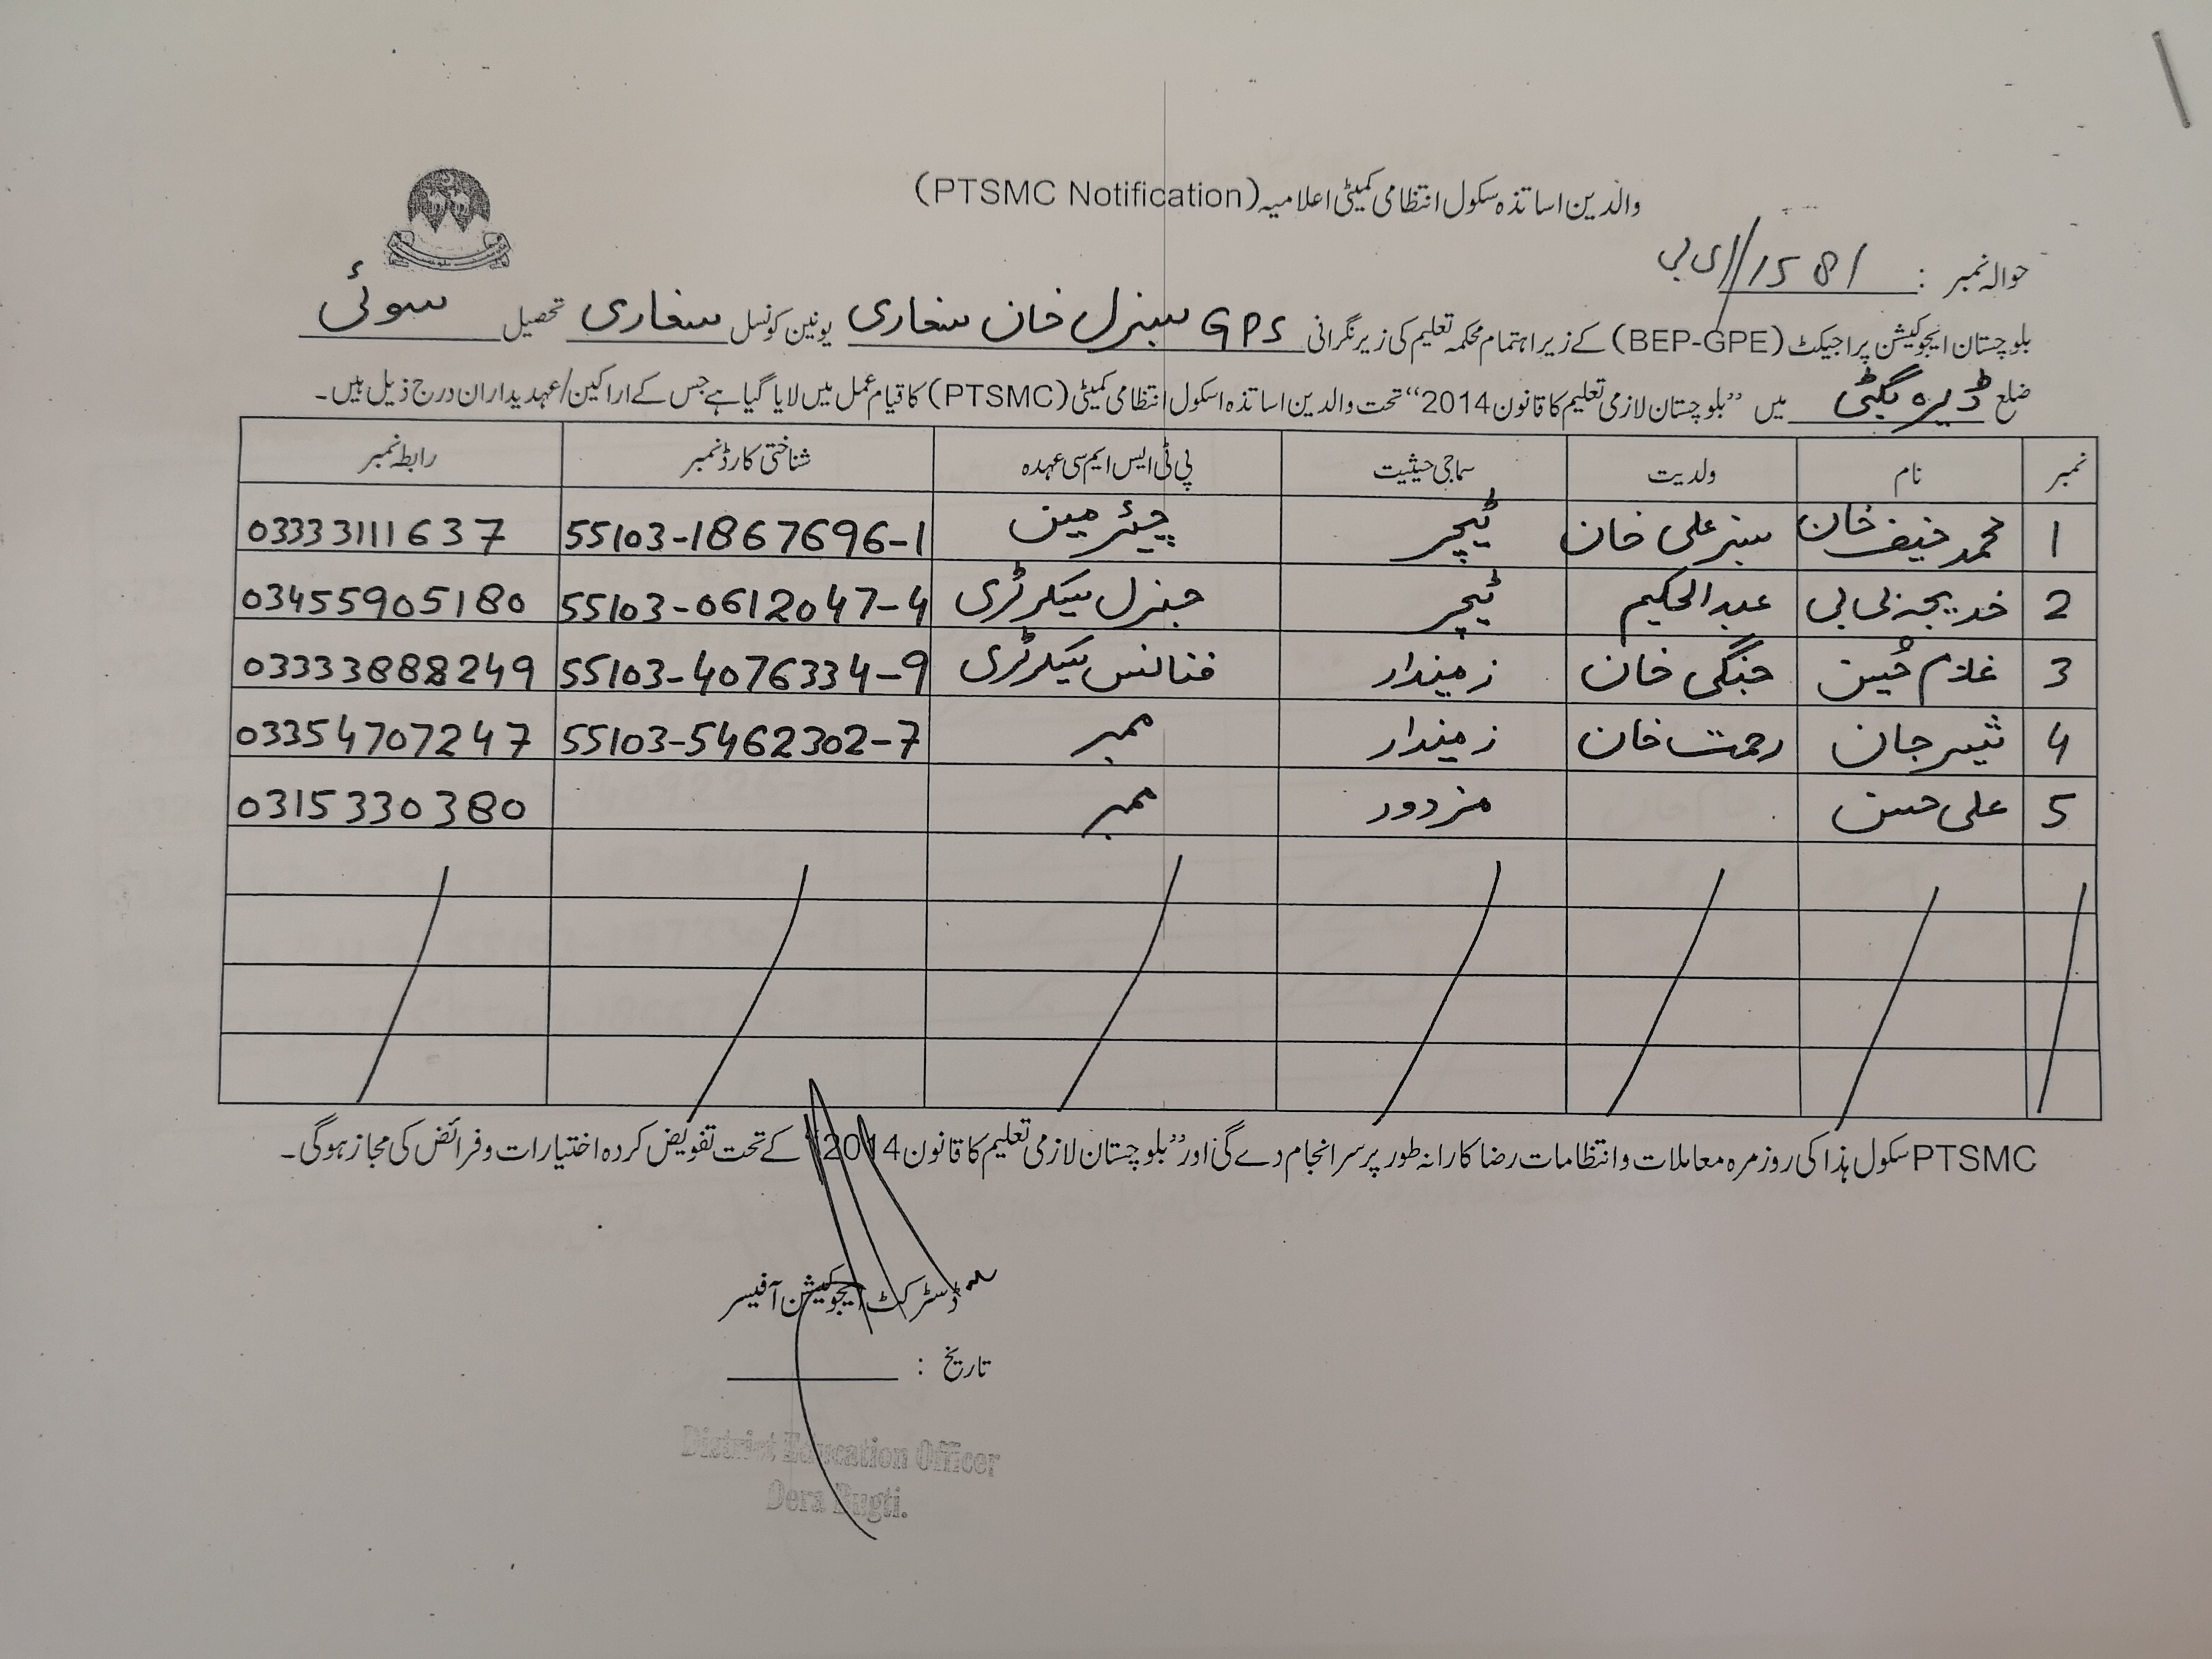 والدین اساتذہ سکول انتظامی کمیٹی اعلامیہ (PTSMC Notification)
حوالہ نمبر : 1581//ای بی
بلوچستان ایجوکیشن پراجیکٹ (BEP-GPE) کے زیر اہتمام محکمہ تعلیم کی زیر نگرانی GPS سبزل خان سغاری یونین کونسل سغاری تحصیل سوئی
ضلع ڈیرہ بگٹی میں ”بلوچستان لازمی تعلیم کا قانون 2014“ تحت والدین اساتذہ اسکول انتظامی کمیٹی (PTSMC) کا قیام عمل میں لایا گیا ہے جس کے اراکین/عہدیداران درج ذیل ہیں۔
نمبر نام ولدیت سماجی حیثیت پی ٹی ایس ایم سی عہدہ شناختی کارڈ نمبر رابطہ نمبر
1 محمد حنیف خان سبز علی خان ٹیچر چیئرمین 55103-1867696-1 03333111637
2 خدیجہ بی بی عبدالحکیم ٹیچر جنرل سیکرٹری 55103-0612047-4 03455905180
3 غلام حُسین جنگی خان زمیندار فنانس سیکرٹری 55103-4076334-9 03333888249
4 شیر جان رحمت خان زمیندار ممبر 55103-5462302-7 03354707247
5 علی حسن مزدور ممبر 0315330380
PTSMC سکول ہذا کی روزمرہ معاملات و انتظامات رضا کارانہ طور پر سرانجام دے گی اور ”بلوچستان لازمی تعلیم کا قانون 2014“ کے تحت تفویض کردہ اختیارات و فرائض کی مجاز ہوگی۔
ڈسٹرکٹ ایجوکیشن آفیسر
تاریخ :
District Education Officer
Dera Bugti.